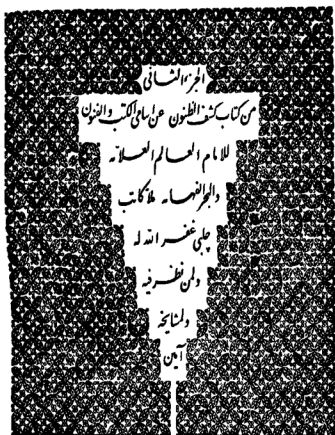 الجزء الثانى
من كتاب كشف الظنون عن اسامى الكتب والفنون
للامام العالم العلامه
والبحر الفهامه ملا كاتب
چلبى غفر الله له
ولمن نظر فيه
ولمشايخه
آمين